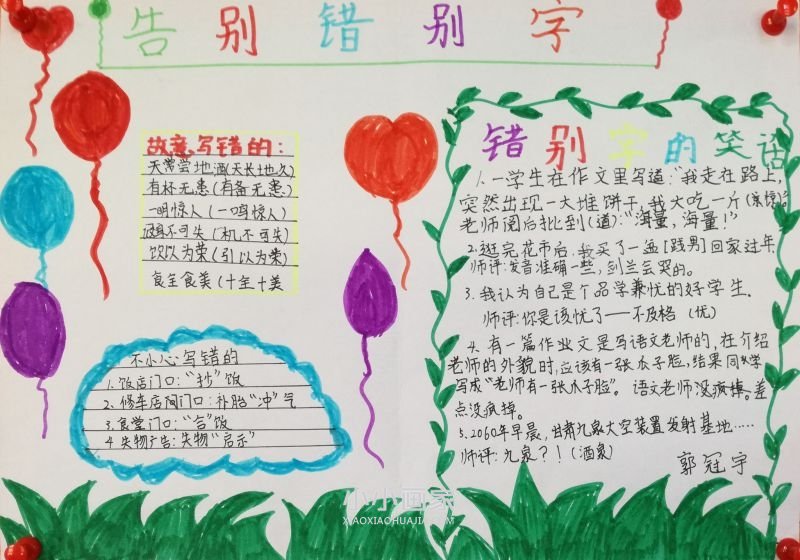 告别错别字
故意写错的:
天常尝地酒(天长地久)
有杯无患(有备无患)
一明惊人(一鸣惊人)
不可失(机不可失)
饮以为荣(引以为荣)
食全食美(十全十美
不小心写错的
1.饭店门口:“抄”饭
2.修车店门口:补胎“冲”气
3.食堂门口:“合”饭
4.失物广告:失物“启示”
错别字的笑话
1.一学生在作文里写道:“我走在路上,
突然出现一大堆饼干,我大吃一斤(惊)。
老师阅后批到(道):“海量,海量!”
2.逛完花市后,我买了一盆[贱男]回家过年
师评:发音准确一些,到兰会哭的。
3.我认为自己是个品学兼忧的好学生.
师评:你是该忧了——不及格(优)
4.有一篇作业文是写语文老师的,在介绍
老师的外貌时,应该有一张瓜子脸,结果同学
写成“老师有一张爪子脸”。语文老师没疯掉。差
点没疯掉。
5.2060年早晨,甘肃九泉太空装置发射基地……
师评:九泉?!(酒泉)
郭冠宇
小小画家
XIAOXIAOHUAJIA.COM